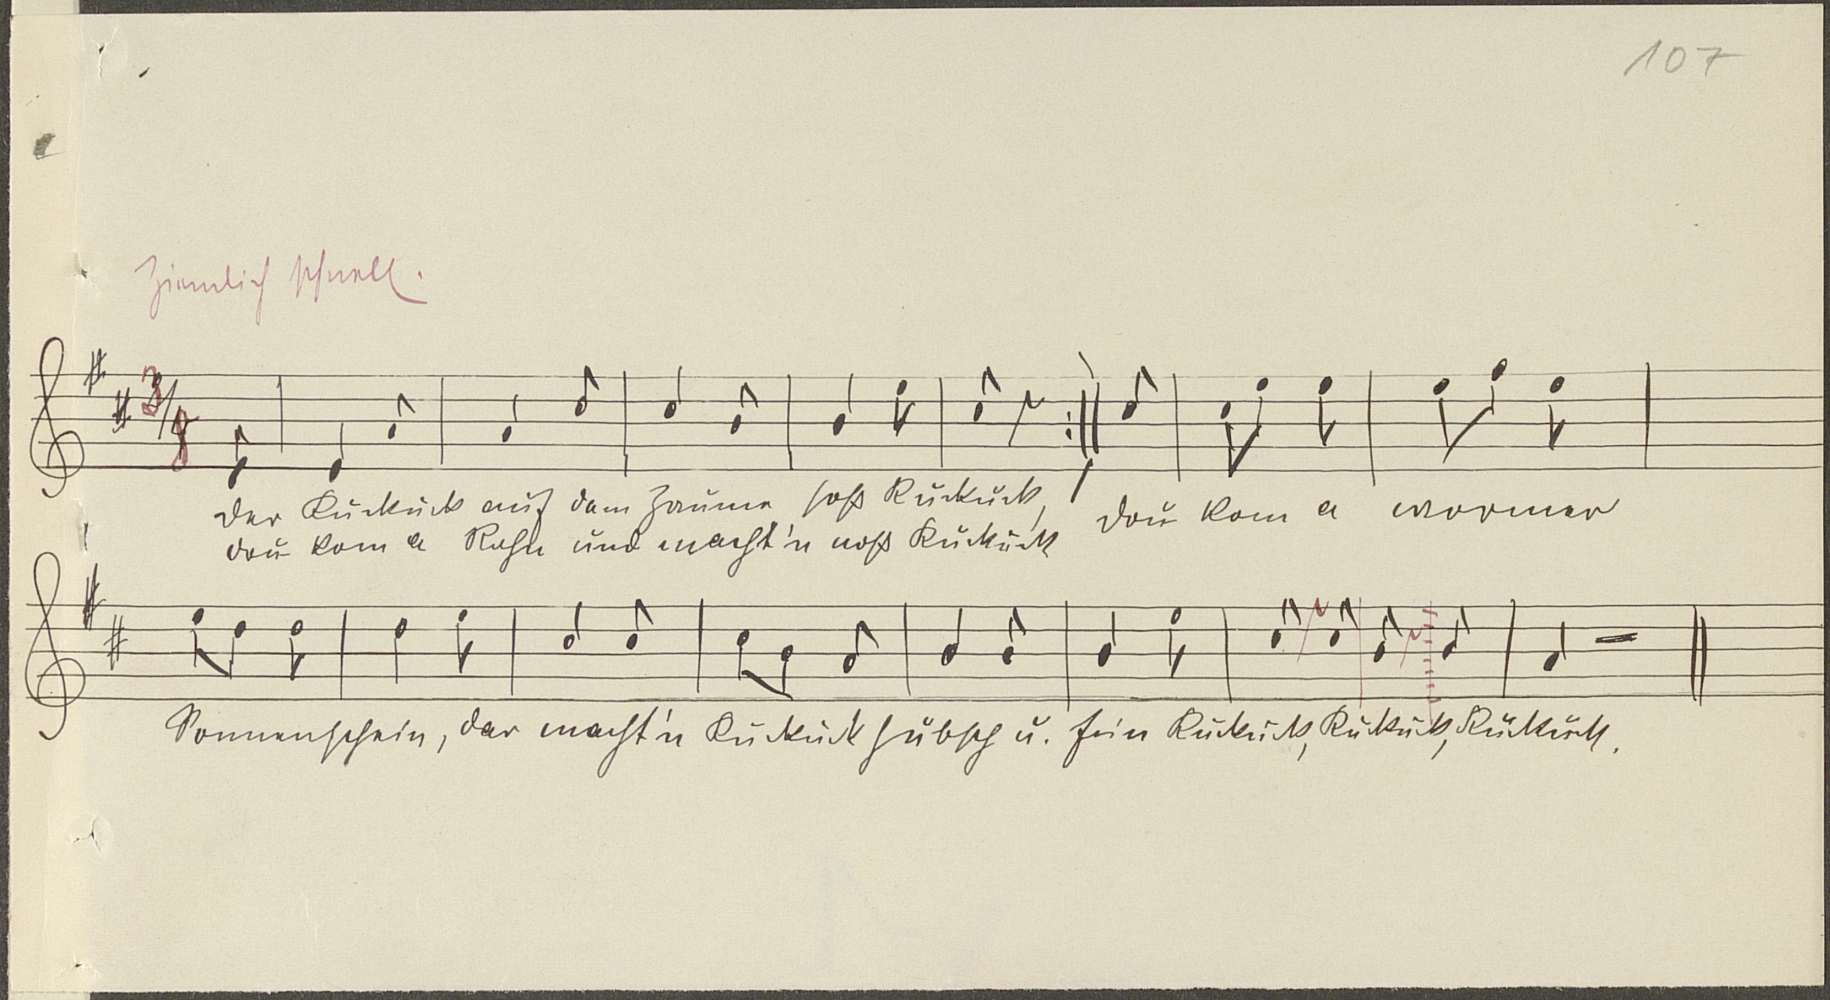 107
Ziemlich schnell.
3/8
der Kuckuck auf dem Zaune soß Kuckuck,
dou kom a wormer
dou kom a Rahn und macht'n noß Kuckuck
Sonnenschein, dar macht'n Kuckuck hübsch u. fein Kuckuck, Kuckuck, Kuckuck.